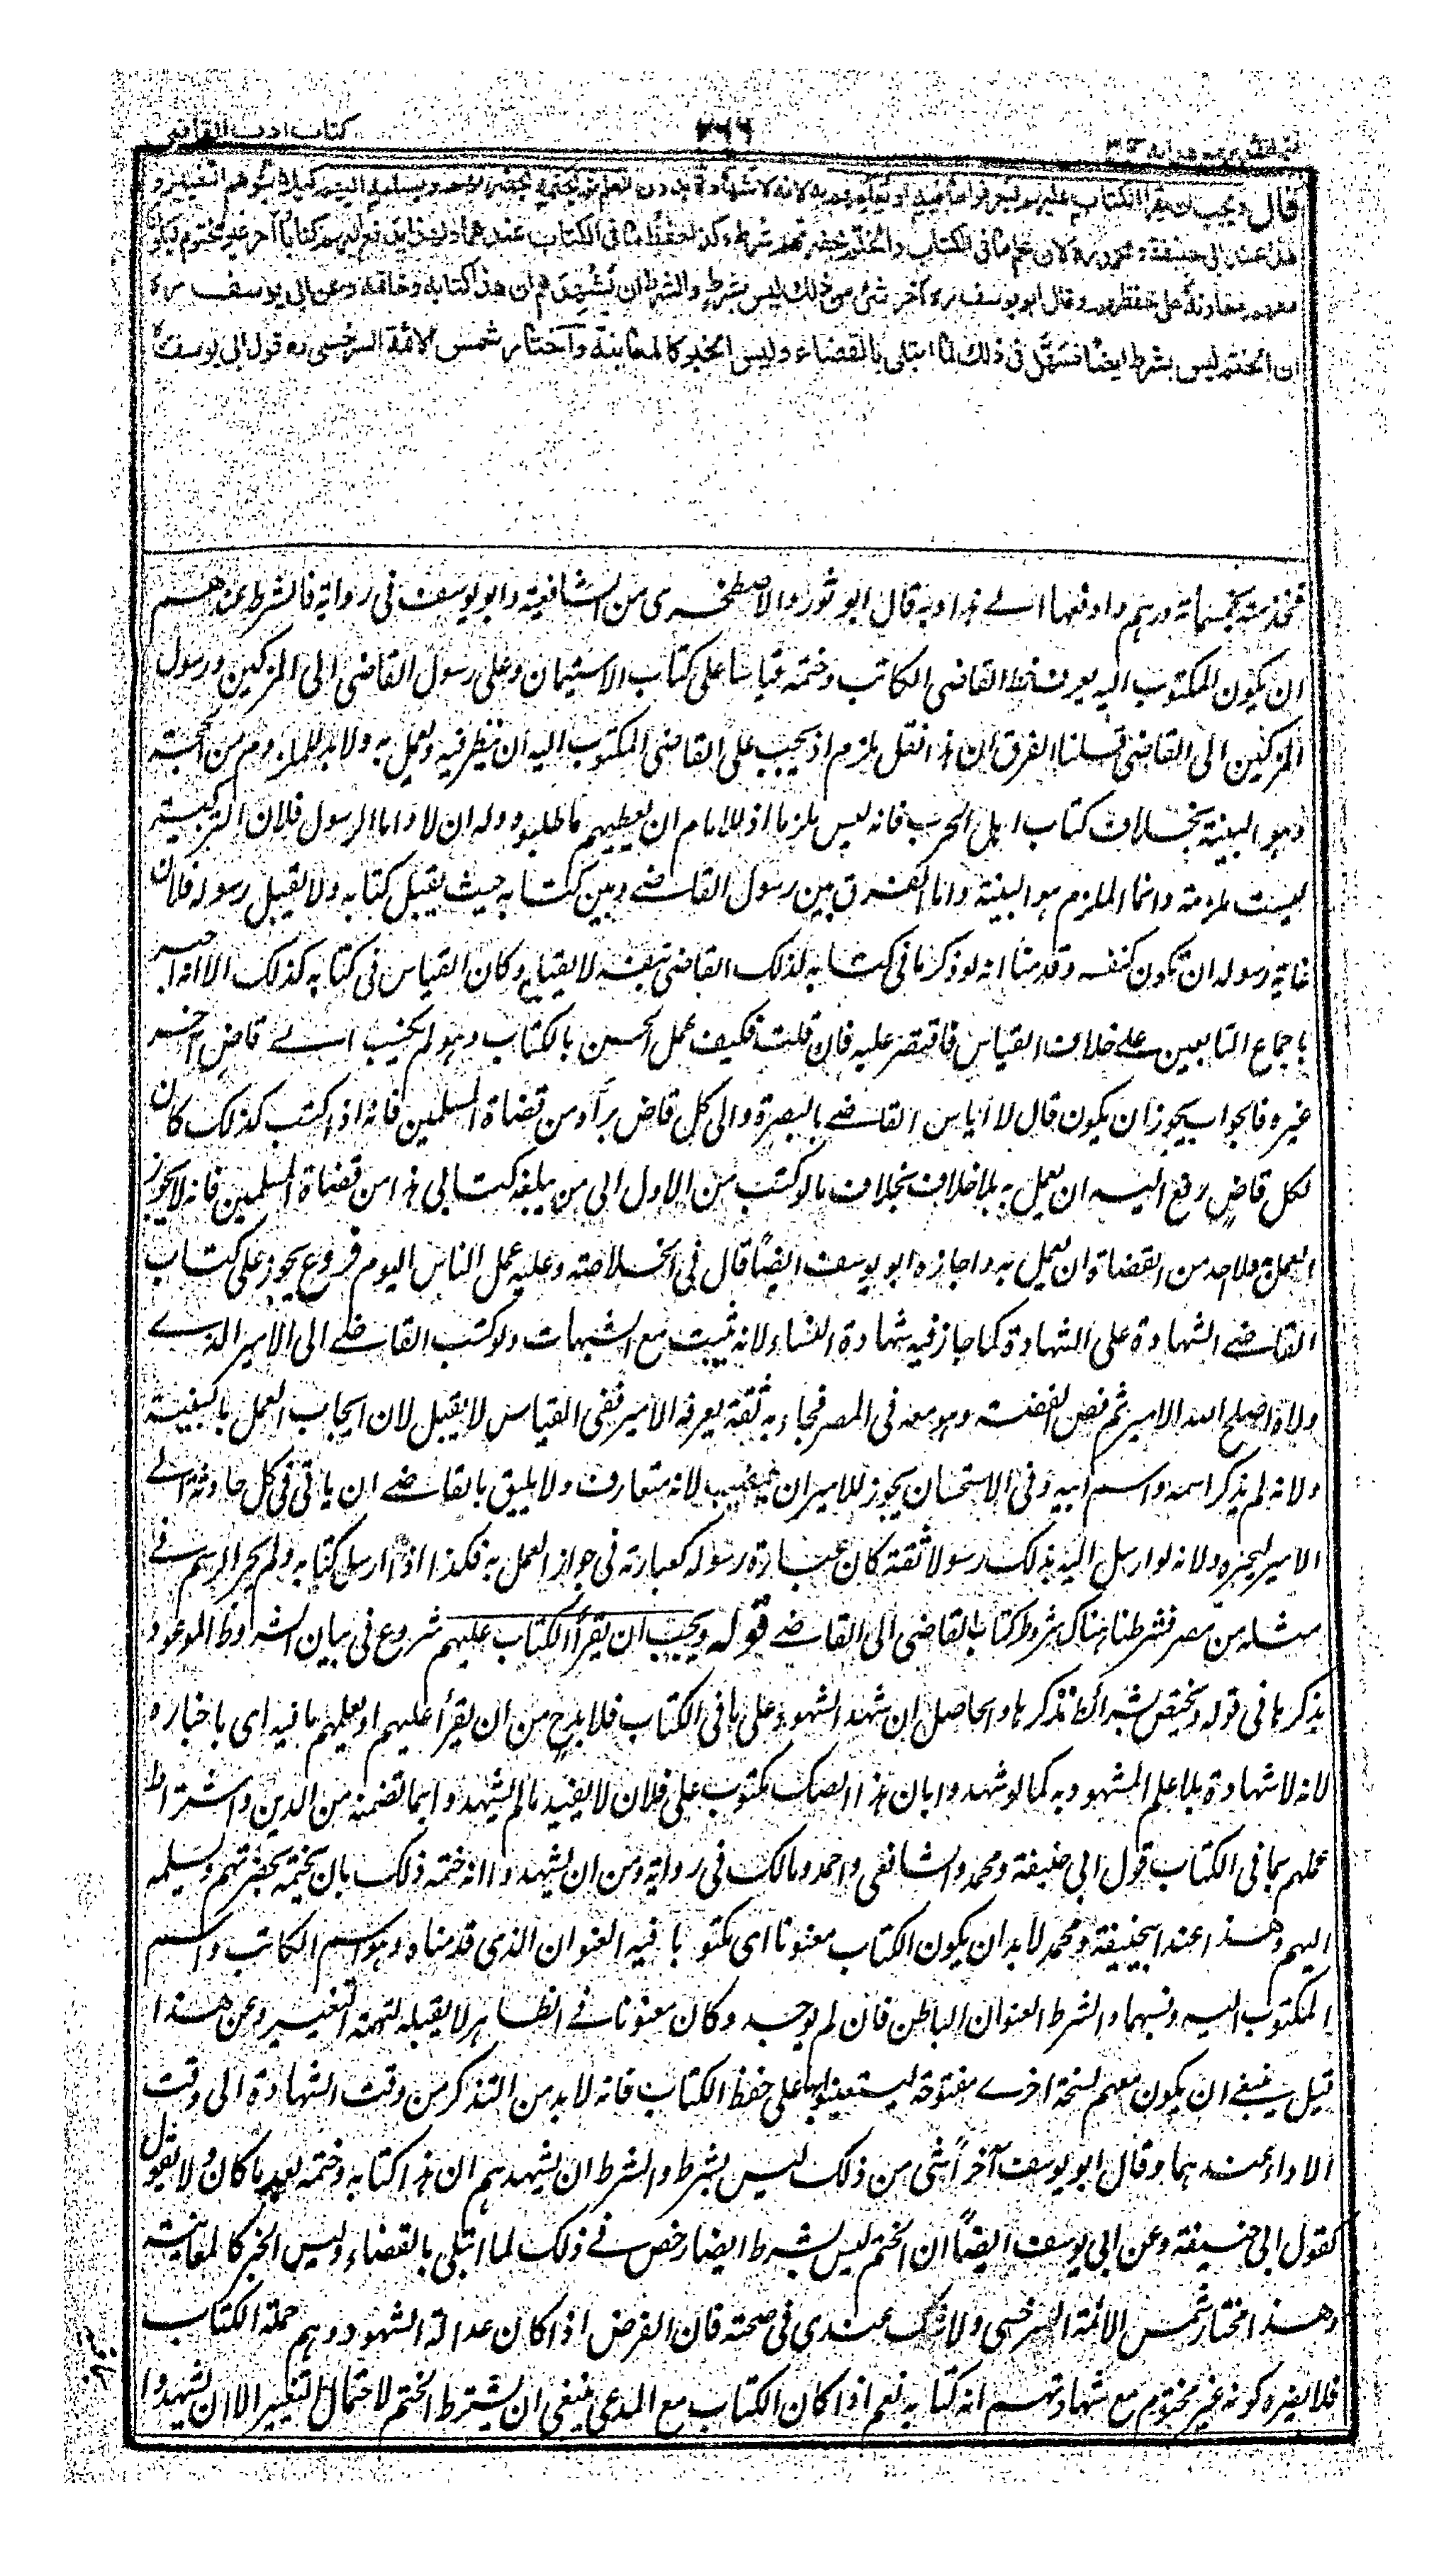 كتاب ادب القاضي
۲۶۶
فتح القدير مع هدايه ج ۳
قال ويجب ان يقرأ الكتاب عليهم ليعرفوا ما فيه او يعلمهم به لانه لا شهادة بدون العلم ثم يختمه بحضرتهم ويسلمه اليهم كيلا يتوهم التغيير و
هذا عند ابي حنيفة و محمد ره لان علم ما في الكتاب والختم بحضرتهم شرط وكذا حفظ ما في الكتاب عندهما ولهذا يدفع اليهم كتابا آخر غير مختوم ليكون
معهم معاونة على حفظهم وقال ابو يوسف ره آخر شئ من ذلك ليس بشرط والشرط ان يشهدهم ان هذا كتابه وخاتمه وعن ابي يوسف ره
ان الختم ليس بشرط ايضا فسهل في ذلك لما ابتلى بالقضاء وليس الخبر كالمعاينة واختار شمس الائمة السرخسي ره قول ابي يوسف ره
فخذ منه بخمسمائة درهم وادفعها الے هذا وبه قال ابو ثور والاصطخرى من الشافعية وابو يوسف فى رواية فالشرط عندهم
ان يكون المكتوب اليه يعرف خط القاضى الكاتب وختمه قياسا على كتاب الاستيمان وعلى رسول القاضى الى المزكين ورسول
المزكين الى القاضى قلنا الفرق ان هذا نقل ملزم اذ يجب على القاضى المكتوب اليه ان ينظر فيه ويعمل به ولا بد للملزوم من الحجة
وهو البينة بخلاف كتاب اهل الحرب فانه ليس ملزما اذ للامام ان يعطيهم ما طلبوه وله ان لا واما الرسول فلان التزكية
ليست ملزمة وانما الملزم هو البينة واما الفرق بين رسول القاضے وبين كتابه حيث يقبل كتابه ولا يقبل رسوله فلان
غاية رسوله ان يكون كنفسه وقدمنا انه لو ذكر ما فى كتابه لذلك القاضى بنفسه لا يقبله وكان القياس فى كتابه كذلك الا انه اجيز
باجماع التابعين علے خلاف القياس فاقتصر عليه فان قلت فكيف عمل الحسن بالكتاب وهو لم يكتب الے قاض آخر
غيره فالجواب يجوز ان يكون قال لا اياس القاضے بالبصرة والى كل قاض يراه من قضاة المسلمين فانه اذا كتب كذلك كان
لكل قاض رفع اليه ان يعمل به بلا خلاف بخلاف ما لو كتب من الاول الى من يبلغه كتابى هذا من قضاة المسلمين فانه لا يجوز
العمل به ولا لاحد من القضاة ان يعمل به واجازه ابو يوسف ايضا قال فى الخلاصة وعليه عمل الناس اليوم فروع يجوز على كتاب
القاضے الشهادة على الشهادة كما جاز فيه شهادة النساء لانه يثبت مع الشبهات ولو كتب القاضے الى الامير الذے
ولاه اصلح الله الامير ثم نص القصة وهو معه فى المصر فجاء به ثقة يعرفه الامير ففى القياس لا يقبل لان ايجاب العمل بالبينة
ولانه لم يذكر اسمه واسم ابيه وفى الاستحسان يجوز للامير ان لانه متعارف ولا يليق بالقاضے ان ياتى فى كل حادثة الے
الامير ليخبره ولانه لو ارسل اليه بذلك رسولا ثقة كان عبارة رسوله كعبارته فى جواز العمل به فكذا اذا ارسل كتابه ولم يجر الرسم فى
مثله من مصر فشرطنا هناك شروط كتاب القاضى الى القاضے قوله ويجب ان يقرأ الكتاب عليهم شروع فى بيان الشروط الموعود
بذكرها فى قوله ويختص بشرائط نذكرها والحاصل ان شهد الشهود على ما فى الكتاب فلا بد ح من ان يقرأ عليهم او يعلمهم ما فيه اى باخباره
لانه لا شهادة بلا علم المشهود به كما لو شهدوا بان هذا الصك مكتوب على فلان لا يفيد ما لم يشهدوا بما تضمنه من الدين واشتراط
علمهم بما فى الكتاب قول ابى حنيفة ومحمد والشافعى واحمد ومالك فى رواية ومن ان يشهدوا انه ختمه وذلك بان يختمه بحضرتهم ويسلمه
اليهم وهذا عند ابيحنيفة ومحمد لا بد ان يكون الكتاب معنونا اى مكتوبا فيه العنوان الذى قدمناه وهو اسم الكاتب واسم
المكتوب اليه ونسبهما والشرط العنوان الباطن فان لم يوجد وكان معنونا فے الظاهر لا يقبله لتهمة التغيير وعن هذا
قيل ينبغے ان يكون معهم نسخة اخرے مفتوحة ليستعينوا بها على حفظ الكتاب فانه لا بد من التذكر من وقت الشهادة الى وقت
الاداء عندهما وقال ابو يوسف آخرا شئ من ذلك ليس بشرط والشرط ان يشهدهم ان هذا كتابه وختمه بعد ما كان اولا يقول
كقول ابى حنيفة وعن ابى يوسف ايضا ان الختم ليس بشرط ايضا رخص فے ذلك لما ابتلى بالقضاء وليس الخبر كالمعاينة
وهذا مختار شمس الائمة السرخسى ولا شك عندى فى صحته فان الفرض اذا كان عدالة الشهود وهم حملة الكتاب
فلا يضره كونه غير مختوم مع شهادتهم انه كتابه نعم اذا كان الكتاب مع المدعى ينبغى ان يشترط الختم لاحتمال التغيير الا ان يشهدوا